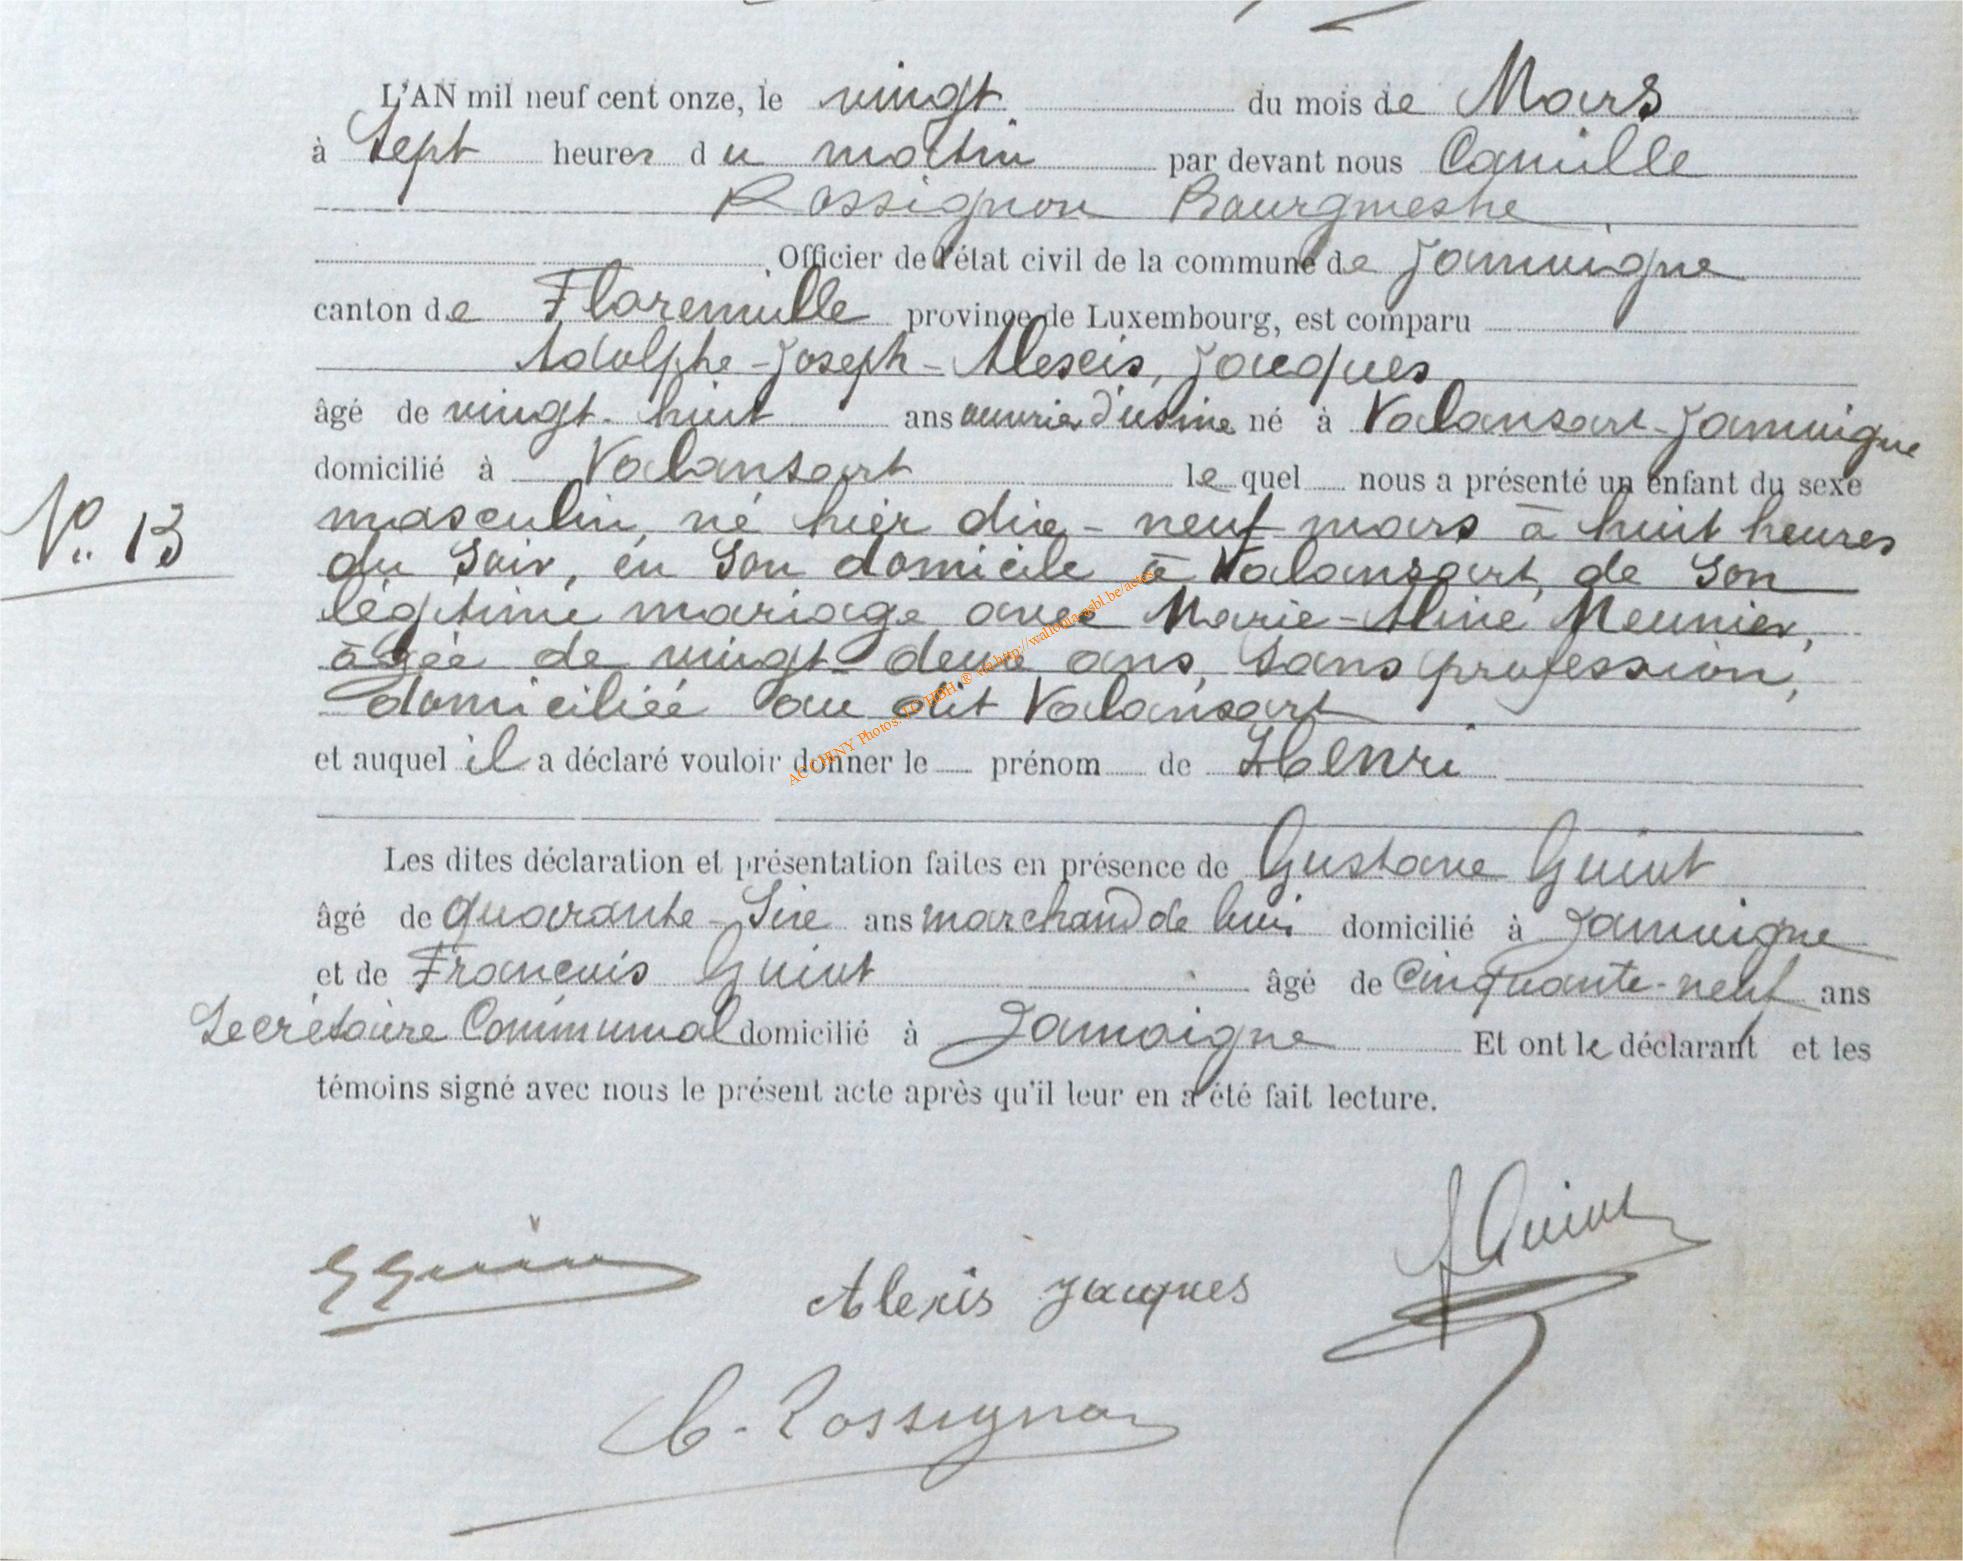 L'AN mil neuf cent onze, le vingt du mois de Mars
à Sept heures du matin par devant nous Camille
Rossignon Bourgmestre
, Officier de l'état civil de la commune de Jamoigne
canton de Florenville province de Luxembourg, est comparu
Adolphe-Joseph-Alexis, Jacques
âgé de vingt-huit ans ouvrier d'usine né à Valansart-Jamoigne
domicilié à Valansart lequel nous a présenté un enfant du sexe
N° 13
masculin, né hier dix-neuf mars à huit heures
du soir, en son domicile à Valansart, de son
légitime mariage avec Marie-Aline Meunier,
âgée de vingt-deux ans, sans profession,
domiciliée au dit Valansart
et auquel il a déclaré vouloir donner le prénom de Henri
Les dites déclaration et présentation faites en présence de Gustave Guiut
âgé de quarante-six ans marchand de bois domicilié à Jamoigne
et de François Guiut âgé de Cinquante-neuf ans
Secrétaire Communal domicilié à Jamoigne Et ont le déclarant et les
témoins signé avec nous le présent acte après qu'il leur en a été fait lecture.
Alexis Jacques
C. Rossignon